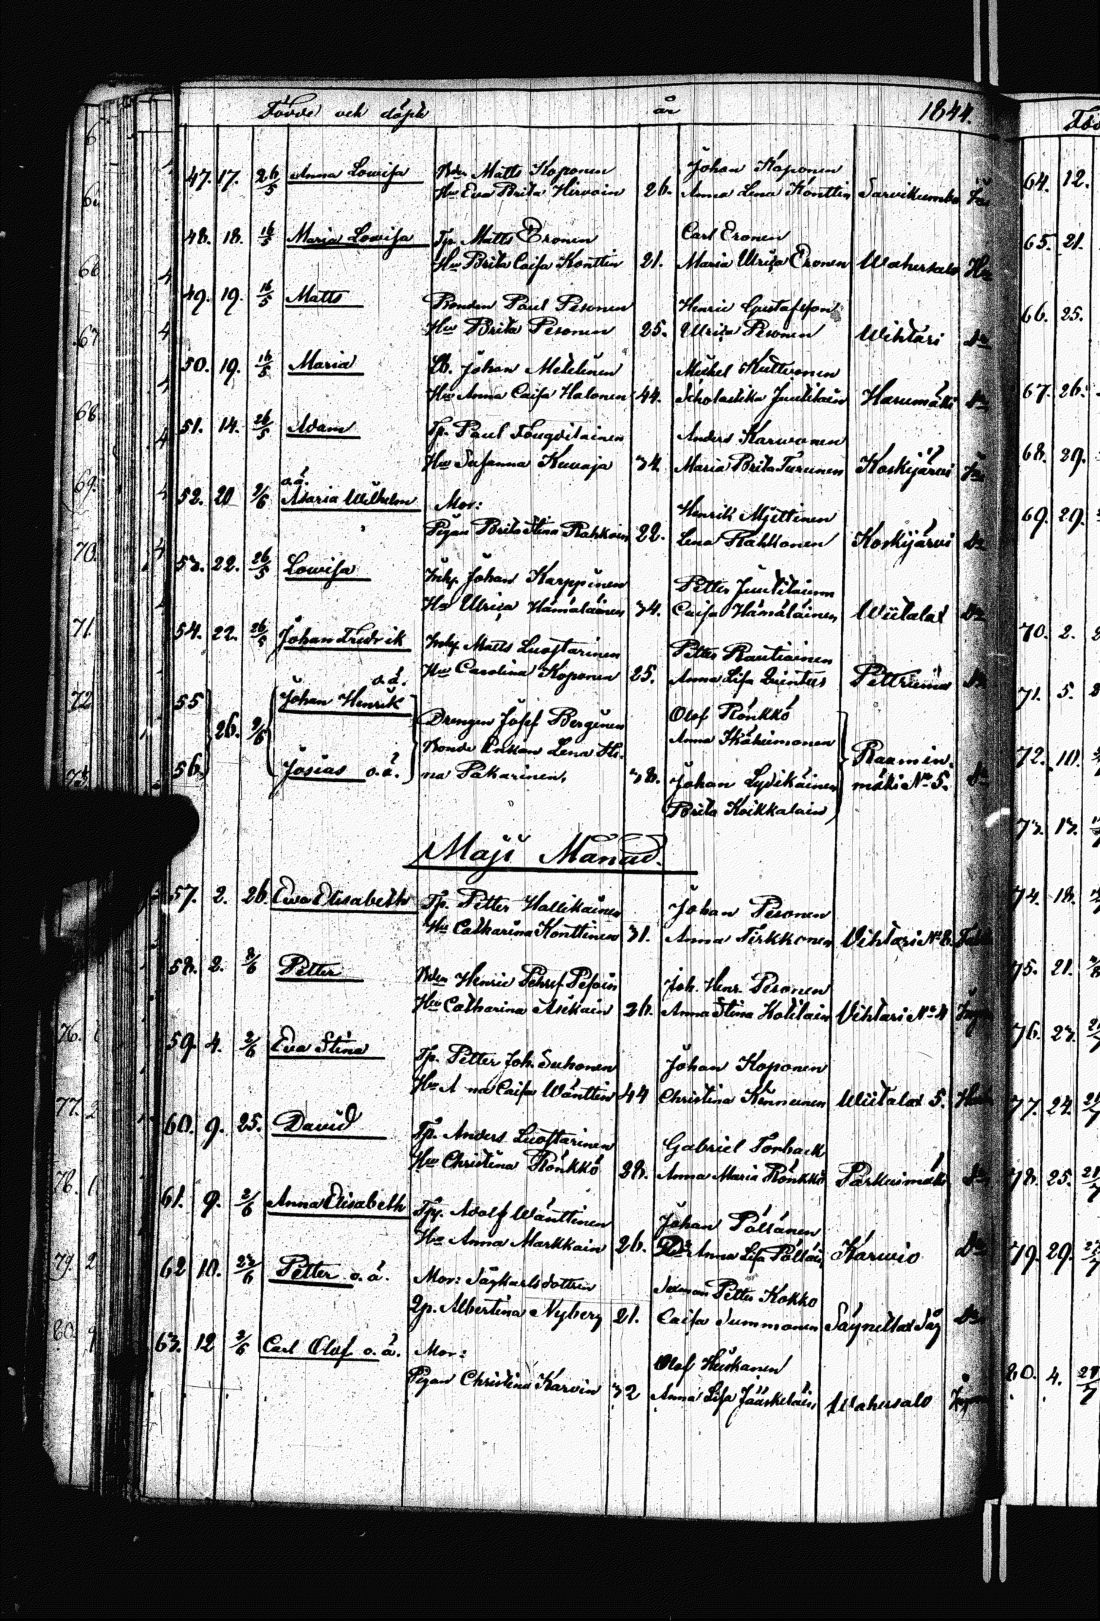 Födde och döpte år 1844.
47. 17. 26/5 Anna Lowisa Bden Matts Koponen Johan Koponen
Hu Eva Brita Hirvoin 26. Anna Lena Konttin Sarvikumbu
48. 18. 16/5 Maria Lowisa Tp. Matts Eronen Carl Eronen
Hu Brita Caisa Konttin 21. Maria Ulrica Eronen Wahersalo
49. 19. 16/5 Matts Bonden Paul Pesonen Henric Gustafsson
Hu Brita Pesonen 25. Ulrica Pesonen Wihtari Do
50. 19. 16/5 Maria Lb. Johan Metelinen Michel Kuttvonen
Hu Anna Caisa Halonen 44. Scholastika Juutilain Harumäki Do
51. 14. 26/5 Adam Tp. Paul Anders Karwonen
Hu Susanna Kuvaja 34. Maria Brita Turunen Koskijärvi
o.ä.
52. 20 2/6 Maria Wilhelm Mor: Henrik Mjettinen
Pigan Brita Stina Rahkoin 22. Lena Rahkonen Koskijärvi Do
53. 22. 26/5 Lowisa Inhy. Johan Karppinen Petter Juutilainen
Hu Ulrica Hämäläinen 34. Caisa Hämäläinen Wiitalax Do
54. 22. 26/5 Johan Fredrik Inhy. Matts Luostarinen Petter Rautiainen
Hu Carolina Koponen 25. Anna Lisa Quintus Do
55 o.ä. Johan Henrik Olof Rönkkö
26. 2/6 Drengen Josef Berginen Anna Ikäheimonen
Bonde Enkan Lena Sti- Raamin-
56. Josias o.ä. na Pakarinen, 38. Johan Lyvikäinen mäki No 5. Do
Brita Koikkalain
Maji Månad.
57. 2. 26. Ewa Elisabeth Tp. Petter Hallikainen Johan Pesonen
Hu Catharina Konttinen 31. Anna Tirkkonen Vihtari No 8.
58. 2. 2/6 Petter Bden Henric Johan Henr. Pesonen
Hu Catharina Asikain 26. Anna Stina Kolilain Vihtari No 4
59. 4. 2/6 Eva Stina Tp. Petter Joh. Suhonen Johan Koponen
Hu Anna Caisa Wänttin 44 Christina Kinnunen Wiitalax 5.
60. 9. 25. David Tp. Anders Luostarinen Gabriel Torback
Hu Christina Rönkkö 28. Anna Maria Rönkkö Parkuimäki Do
61. 9. 2/6 Anna Elisabeth Tpy. Adolf Wänttinen Johan Pöllänen
Hu Anna Markkain 26. Anna Lisa Pölläin Karwio Do
62 10. 23/6 Petter o.ä. Mor: Petter Kokko
Albertina Nyberg 21. Caisa Summanen Do
63. 12 2/6 Carl Olof o.ä. Mor: Olof Heiskanen
Pigan Christina Karvin 32 Anna Lisa Jääskeläin Wahersalo
64. 12.
65. 21.
66. 25.
67. 26.
68. 29.
69. 29.
70. 2.
71. 5.
72. 10.
73. 13.
74. 18.
75. 21.
76. 23.
77. 24.
78. 25.
79. 29.
80. 4.